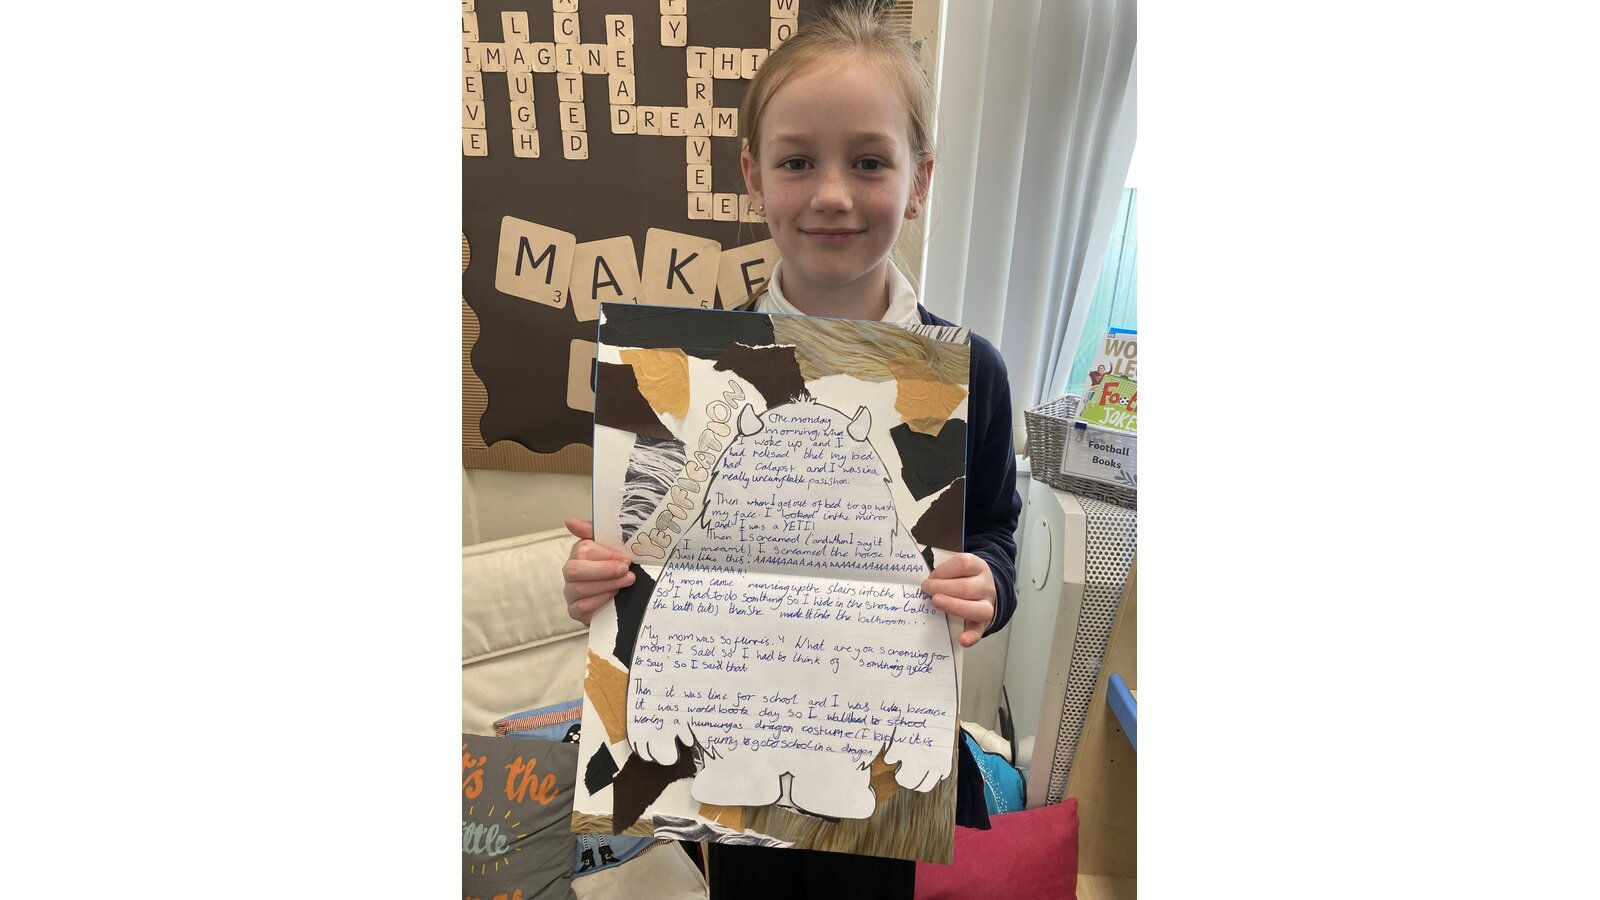 IMAGINE
LAUGH
EXCITED
READ
DREAM
TRAVEL
THI
LEA
MAKE
3 1 5
YETIFICATION
One monday
morning, when
I woke up and I
had relised that my bed
had calapst and I was in a
really uncumftable pasishon.
Then when I got out of bed to go wash
my face. I looked in the mirror
and I was a YETI!
Then I screamed (and when I say it
I meant) I screamed the house down
Just like this:
My mom came running up the stairs into the
so I had to do somthing so I hide in the shower
the bath tub) then she made it into the bathroom...
My mom was so furris. " What are you screming for
mom? I said so I had to think of somthing
to say so I said that
Then it was time for school and I was luky because
it was world book day so I walked to school
wering a humungas dragon costume (I know it is
funny to go to school in a dragon
WO
LE
Foot
JOKE
Football
Books
it's the
little